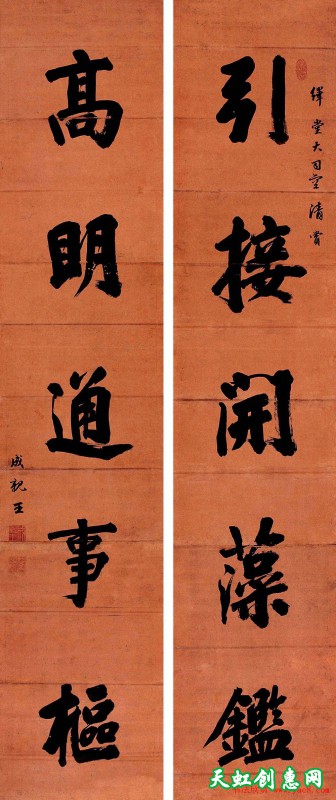 繹堂大司空清賞
引接開藻鑑
高明通事樞
成親王
天虹创惠网